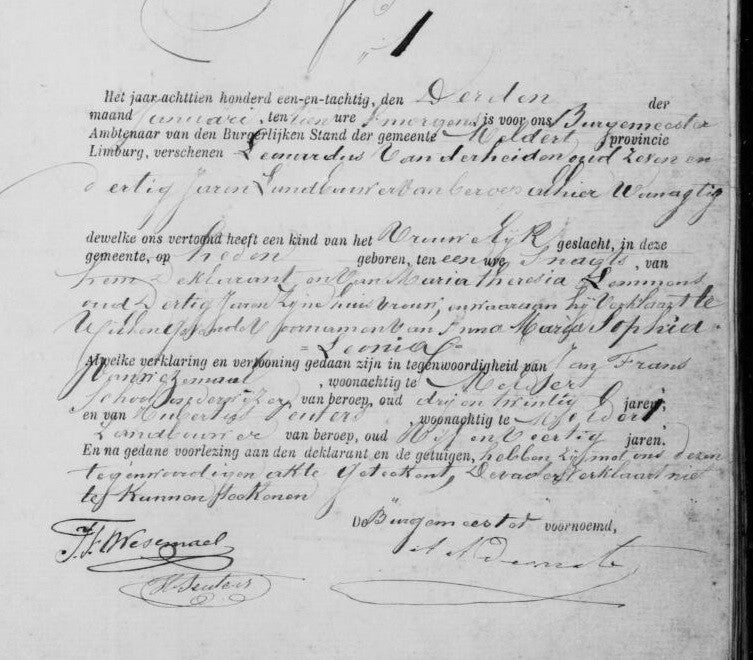 1
Het jaar achttien honderd een-en-tachtig, den Derden der
maand Januari, ten tien ure s'morgens is voor ons Burgemeester
Ambtenaar van den Burgerlijken Stand der gemeente Meldert provincie
Limburg, verschenen Leonardus Vanderheiden oud zeven en
dertig Jaren Landbouwer van beroep alhier Wonagtig
dewelke ons vertoond heeft een kind van het Vrouwelijk geslacht, in deze
gemeente, op heden geboren, ten een ure s'nagts, van
hem Deklarant, en Van Maria Theresia Lemmens
oud Dertig Jaren Zijne huisvrouw, en waaraan hij Verklaart te
Willen geven de Voornamen Van Anna Maria Sophia
= Leonia =
Alwelke verklaring en vertooning gedaan zijn in tegenwoordigheid van Jan Frans
Van Wezemael, woonachtig te Meldert
Schoolonderwijzer van beroep, oud drij en twintig jaren;
en van Hubertus Geuters, woonachtig te Meldert
Landbouwer van beroep, oud en Veertig jaren.
En na gedane voorlezing aan den deklarant en de getuigen, hebben zij met ons dezen
tegenwoordigen akte geteekent, De vader verklaart niet
te Kunnen teekenen
De Burgemeester voornoemd,
J.F. Wesemael